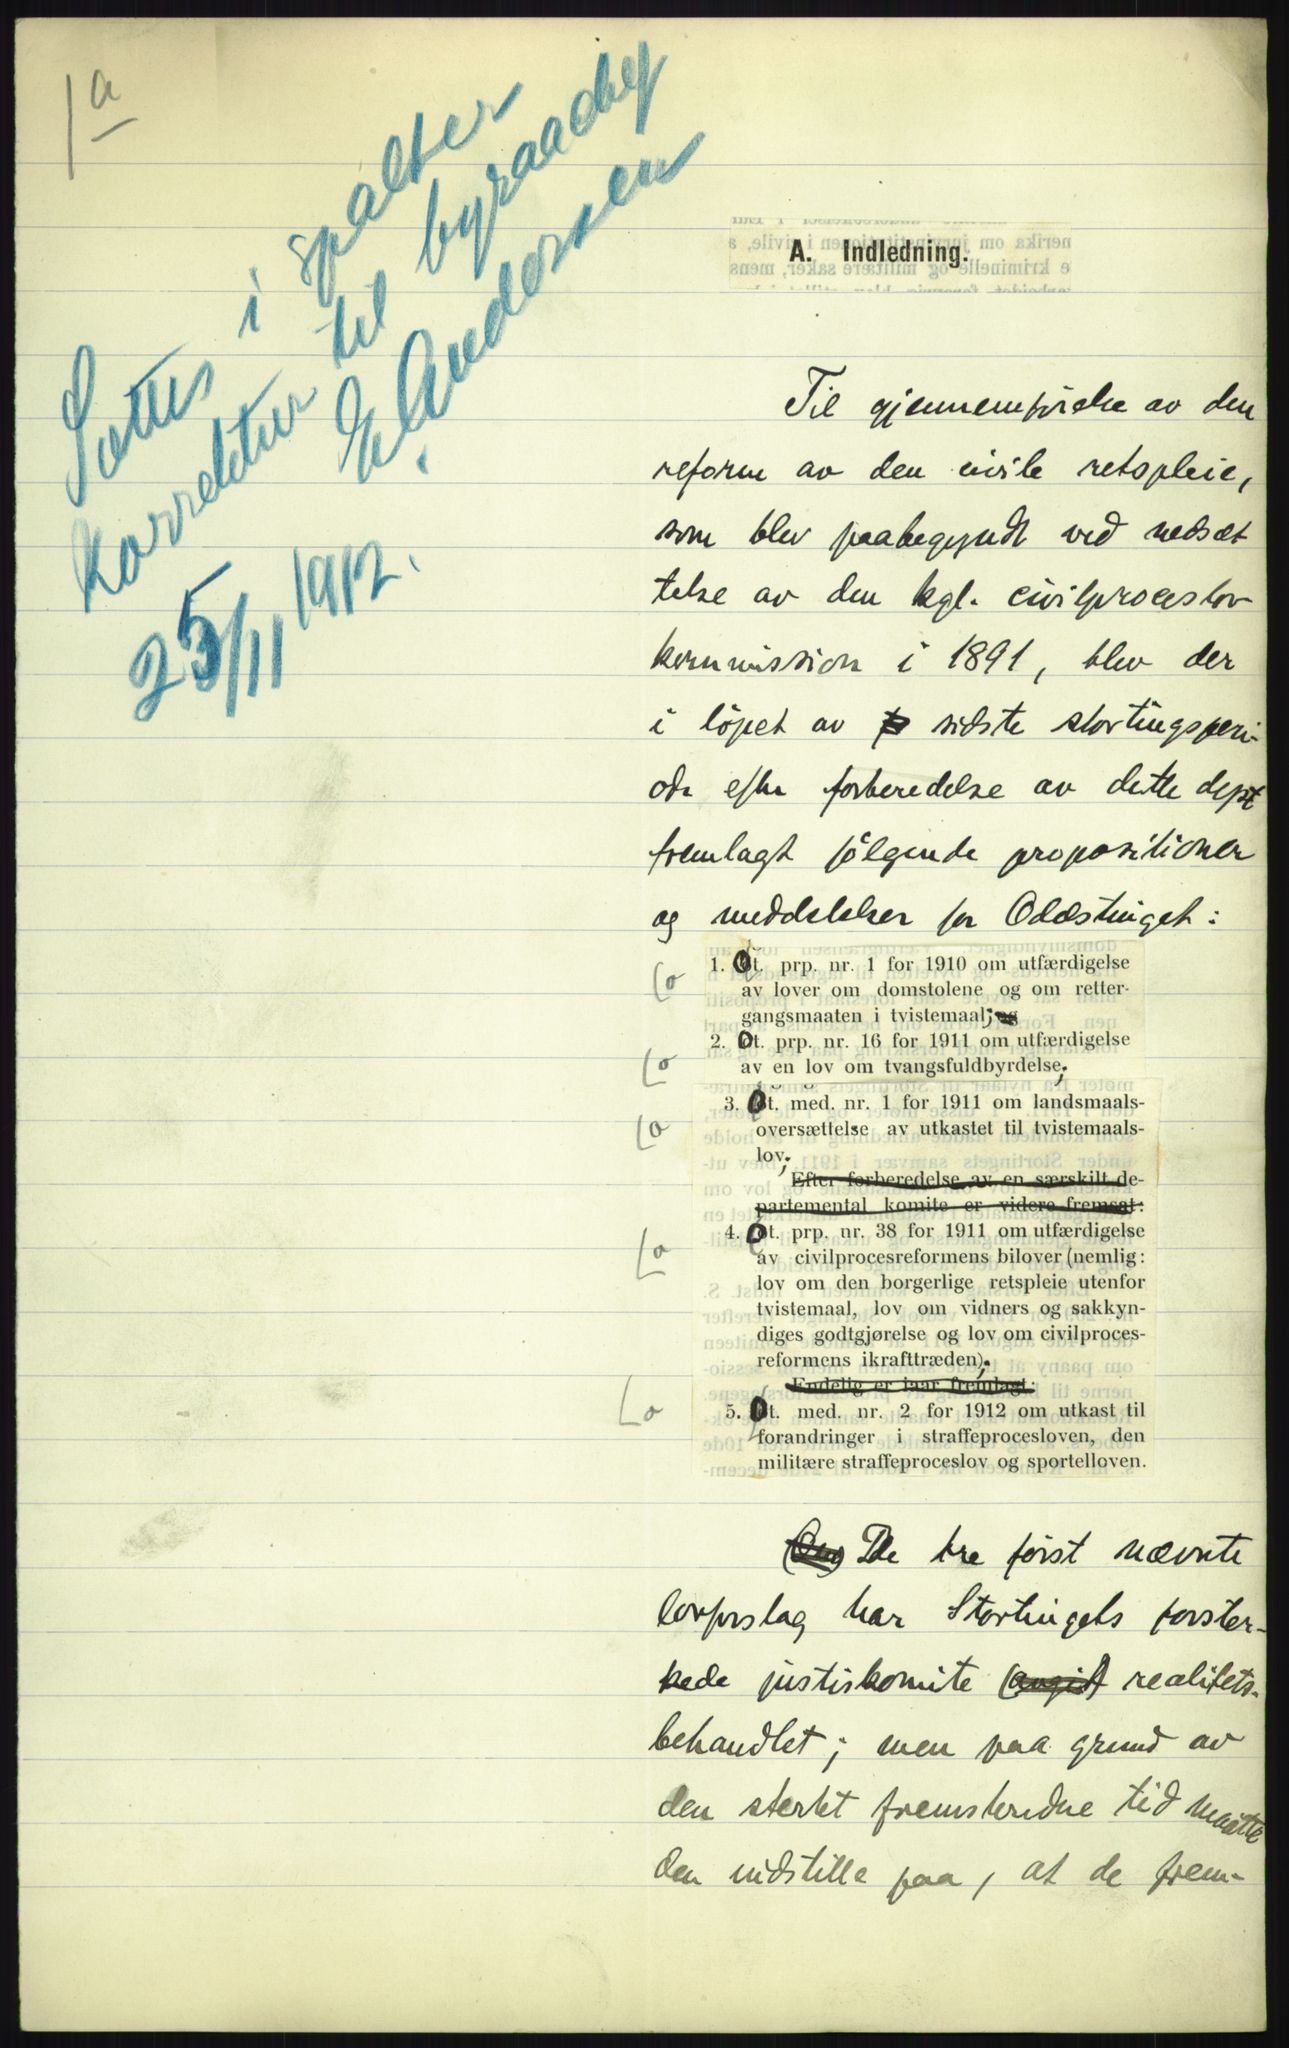 1a
Sættes i spalter
Korrektur til byraachef
E. Andersen
25/11 1912.
A. Indledning.
Til gjennemførelse av den
reform av den civile retspleie,
som blev paabegyndt ved nedsæt
telse av den kgl. civilproceslov
kommission i 1891, blev der
i løpet av sidste stortingsperi-
ode efter forberedelse av dette dept
fremlagt følgende propositioner
og meddelelser for Odelstinget:
1. Ot. prp. nr. 1 for 1910 om utfærdigelse
av lover om domstolene og om retter-
gangsmaaten i tvistemaal; og
2. Ot. prp. nr. 16 for 1911 om utfærdigelse
av en lov om tvangsfuldbyrdelse;
3. Ot. med. nr. 1 for 1911 om landsmaals-
oversættelse av utkastet til tvistemaals-
lov;
Efter forberedelse av en særskilt de-
partemental komite er videre fremsat:
4. Ot. prp. nr. 38 for 1911 om utfærdigelse
av civilprocesreformens bilover (nemlig:
lov om den borgerlige retspleie utenfor
tvistemaal, lov om vidners og sakkyn-
diges godtgjørelse og lov om civilproces-
reformens ikrafttræden);
Endelig er iaar fremlagt:
5. Ot. med. nr. 2 for 1912 om utkast til
forandringer i straffeprocesloven, den
militære straffeproceslov og sportelloven.
De tre først nævnte
lovforslag har Stortingets forster-
kede justiskomite (avgit) realitets-
behandlet; men paa grund av
den sterkt fremskredne tid maatte
den indstille paa, at de frem-